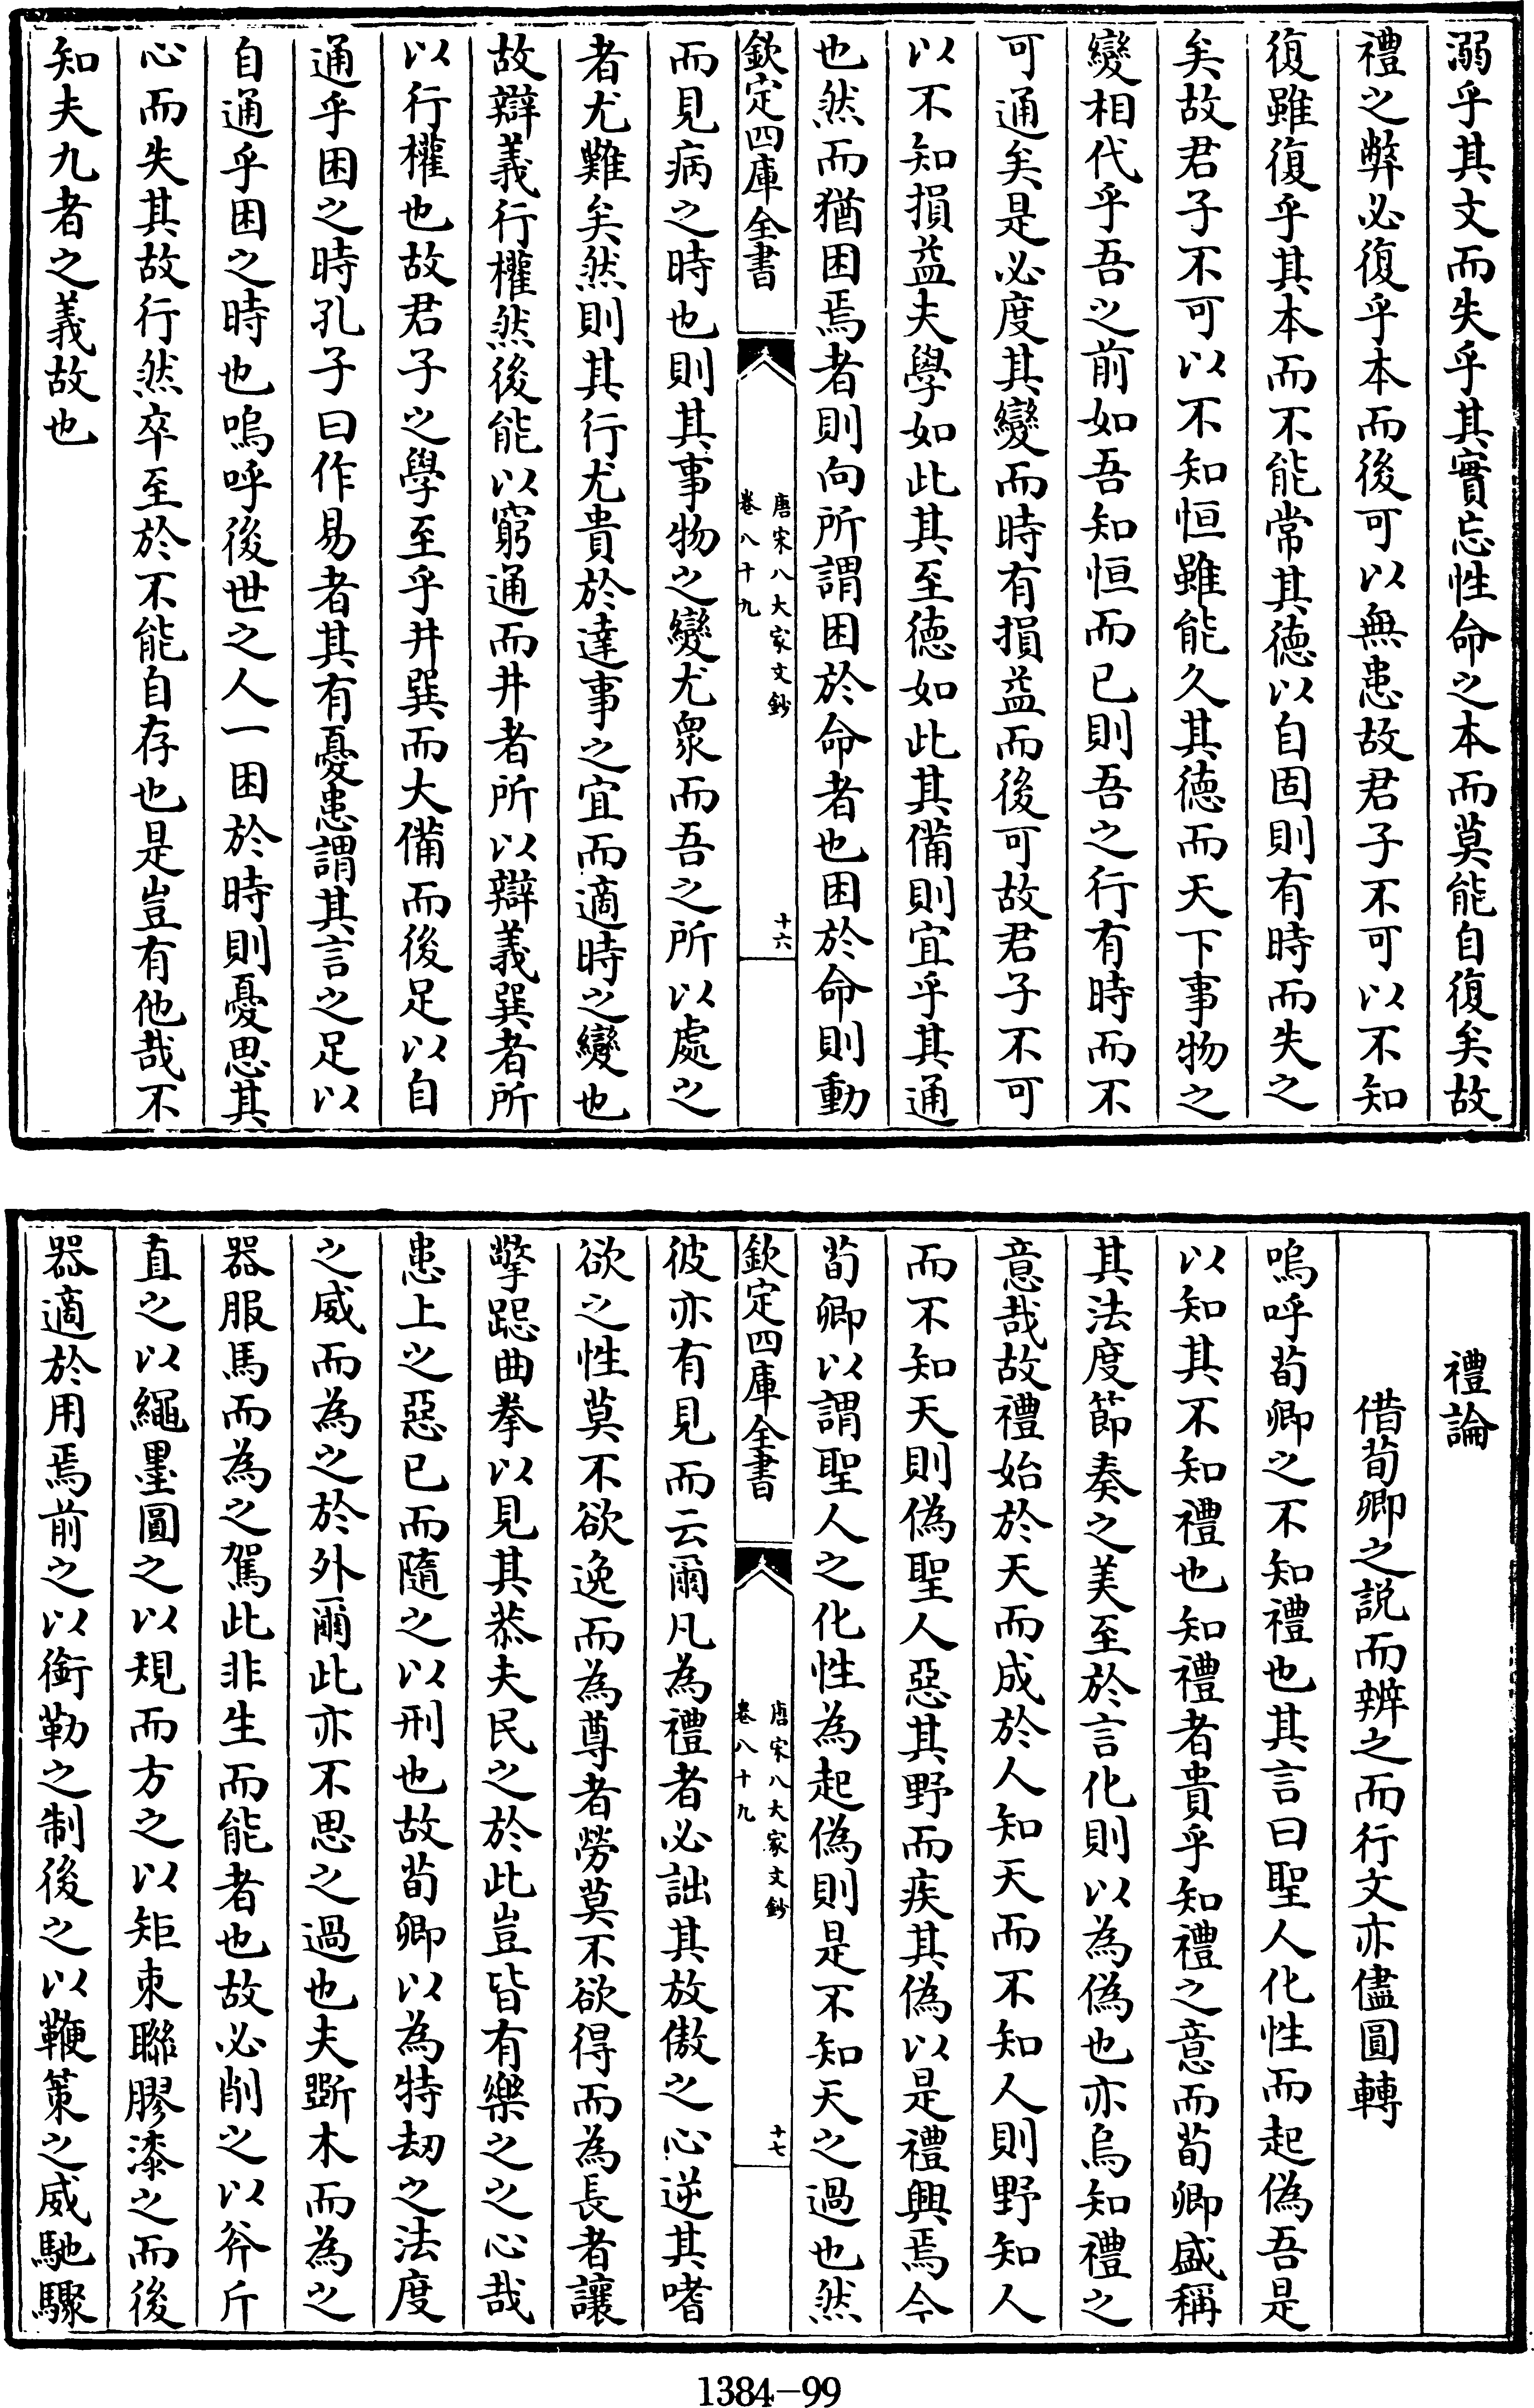 溺乎其文而失乎其實忘性命之本而莫能自復矣故
禮之弊必復乎本而後可以無患故君子不可以不知
復雖復乎其本而不能常其德以自固則有時而失之
矣故君子不可以不知恒雖能久其德而天下事物之
變相代乎吾之前如吾知恒而已則吾之行有時而不
可通矣是必度其變而時有損益而後可故君子不可
以不知損益夫學如此其至德如此其備則宜乎其通
也然而猶困焉者則向所謂困於命者也困於命則動
欽定四庫全書
唐宋八大家文鈔
卷八十九
十六
而見病之時也則其事物之變尤衆而吾之所以處之
者尤難矣然則其行尤貴於達事之宜而適時之變也
故辯義行權然後能以窮通而井者所以辯義巽者所
以行權也故君子之學至乎井巽而大備而後足以自
通乎困之時孔子曰作易者其有憂患謂其言之足以
自通乎困之時也嗚呼後世之人一困於時則憂思其
心而失其故行然卒至於不能自存也是豈有他哉不
知夫九者之義故也
禮論
借荀卿之説而辨之而行文亦儘圓轉
嗚呼荀卿之不知禮也其言曰聖人化性而起偽吾是
以知其不知禮也知禮者貴乎知禮之意而荀卿盛稱
其法度節奏之美至於言化則以為偽也亦烏知禮之
意哉故禮始於天而成於人知天而不知人則野知人
而不知天則偽聖人惡其野而疾其偽以是禮興焉今
荀卿以謂聖人之化性為起偽則是不知天之過也然
欽定四庫全書
唐宋八大家文鈔
卷八十九
十七
彼亦有見而云爾凡為禮者必詘其放傲之心逆其嗜
欲之性莫不欲逸而為尊者勞莫不欲得而為長者讓
擎跽曲拳以見其恭夫民之於此豈皆有樂之之心哉
患上之惡已而隨之以刑也故荀卿以為特刼之法度
之威而為之於外爾此亦不思之過也夫斲木而為之
器服馬而為之駕此非生而能者也故必削之以斧斤
直之以繩墨圓之以規而方之以矩束聯膠漆之而後
器適於用焉前之以銜勒之制後之以鞭策之威馳驟
1384-99